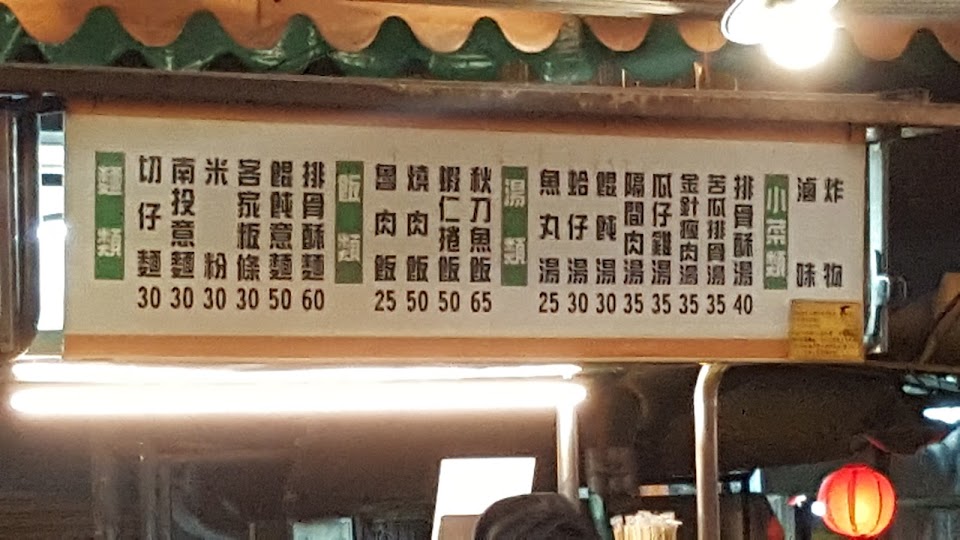 麵類
切仔麵 30
南投意麵 30
米粉 30
客家板條 30
餛飩意麵 50
排骨酥麵 60
飯類
魯肉飯 25
燒肉飯 50
蝦仁捲飯 50
秋刀魚飯 65
湯類
魚丸湯 25
蛤仔湯 30
餛飩湯 30
隔間肉湯 35
瓜仔雞湯 35
金針瘦肉湯 35
苦瓜排骨湯 35
排骨酥湯 40
小菜類
滷味
炸物